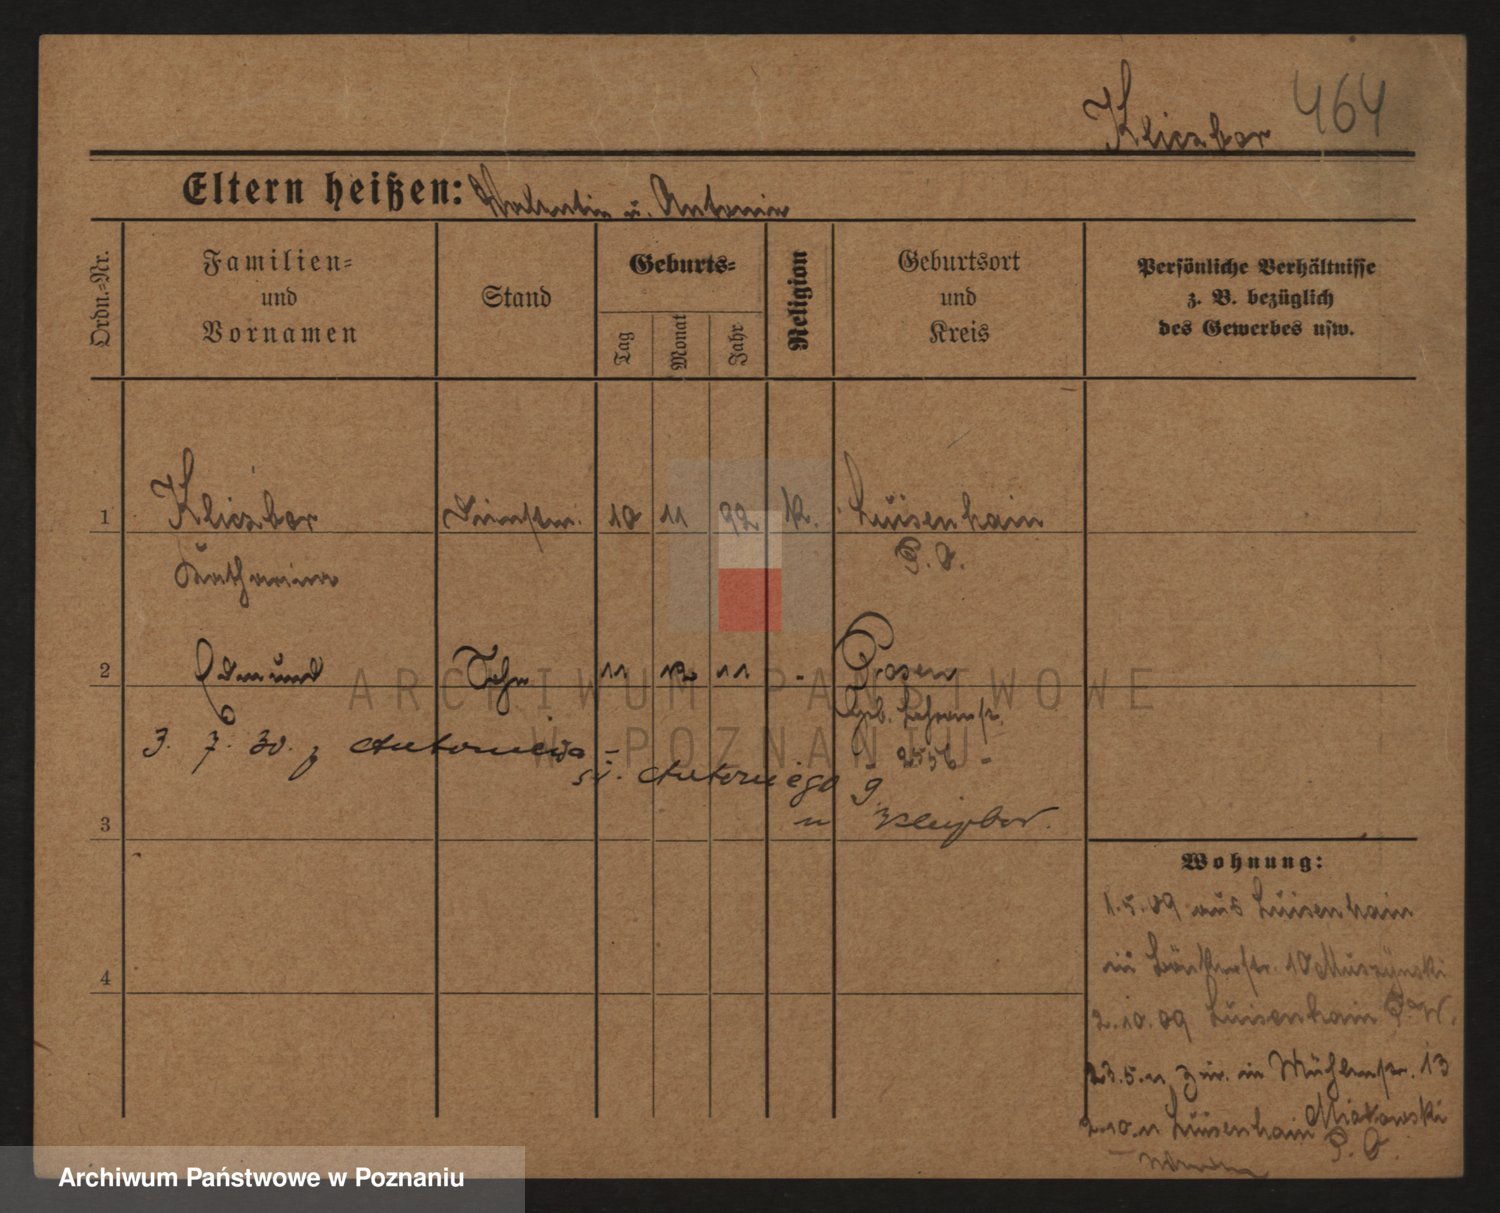 Kliczbor 464
Eltern heißen: Valentin u. Antonia
Ordn.-Nr.
Familien-
und
Vornamen
Stand
Geburts-
Tag
Monat
Jahr
Religion
Geburtsort
und
Kreis
Persönliche Verhältnisse
z. B. bezüglich
des Gewerbes usw.
1 Kliczbor 10 11 92 K. Luisenhain
Katharina P. O.
2 Edmund Sohn 11 12 11 - Posen
Geb.
3. 7. 30. z Antoniewa - 2556 -
św. Antoniego 9
u Kliczbor.
3
4
Wohnung:
1.5.09 aus Luisenhain
in 10 Muszynski
2.10.09 Luisenhain P. W.
23.5.11 zur. in Mühlenstr. 13
Miakowski
2.10.11 Luisenhain P. O.
ARCHIWUM PAŃSTWOWE
W POZNANIU
Archiwum Państwowe w Poznaniu